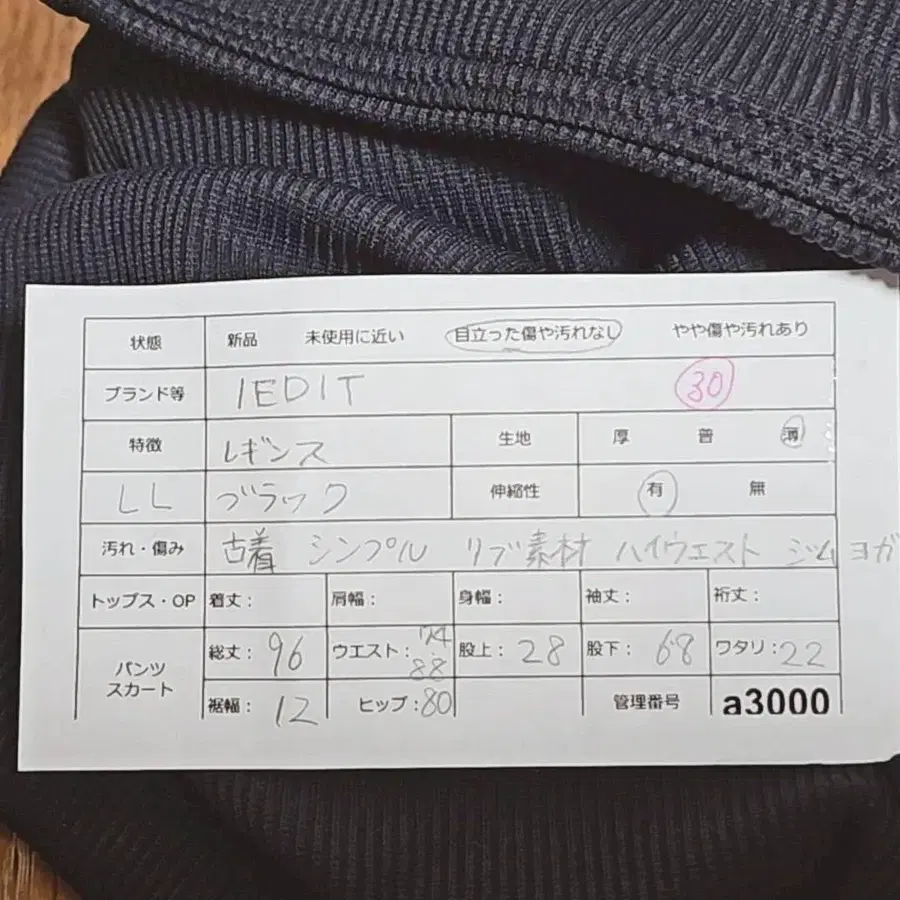 状態 新品 未使用に近い 目立った傷や汚れなし やや傷や汚れあり
ブランド等 IEDIT 30
特徴 レギンス 生地 厚 普 薄
LL ブラック 伸縮性 有 無
汚れ・傷み 古着 シンプル リブ素材 ハイウエスト ジム ヨガ
トップス・OP 着丈: 肩幅: 身幅: 袖丈: 裄丈:
パンツ スカート 総丈: 96 ウエスト: 74 88 股上: 28 股下: 68 ワタリ: 22
裾幅: 12 ヒップ: 80 管理番号 a3000